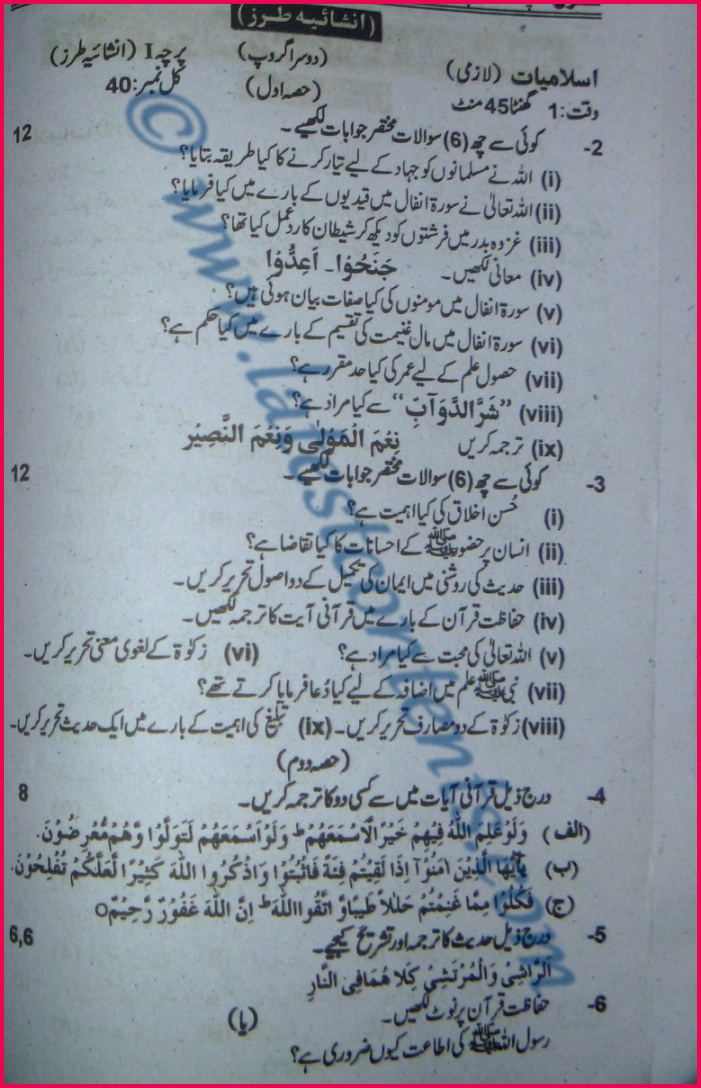 (انشائیہ طرز)
اسلامیات (لازمی) (دوسرا گروپ) پرچہ I (انشائیہ طرز)
وقت: 1 گھنٹا 45 منٹ (حصہ اول) کل نمبر: 40
2- کوئی سے چھ (6) سوالات مختصر جوابات لکھیے۔ 12
(i) اللہ نے مسلمانوں کو جہاد کے لیے تیار کرنے کا کیا طریقہ بتایا؟
(ii) اللہ تعالیٰ نے سورۃ انفال میں قیدیوں کے بارے میں کیا فرمایا؟
(iii) غزوہ بدر میں فرشتوں کو دیکھ کر شیطان کا ردعمل کیا تھا؟
(iv) معانی لکھیں۔ جَنَحُوْا۔ اَعِدُّوْا
(v) سورۃ انفال میں مومنوں کی کیا صفات بیان ہوئی ہیں؟
(vi) سورۃ انفال میں مال غنیمت کی تقسیم کے بارے میں کیا حکم ہے؟
(vii) حصول علم کے لیے عمر کی کیا حد مقرر ہے؟
(viii) ”شَرَّ الدَّوَآبِّ“ سے کیا مراد ہے؟
(ix) ترجمہ کریں نِعْمَ الْمَوْلٰى وَنِعْمَ النَّصِيْر
3- کوئی سے چھ (6) سوالات مختصر جوابات لکھیے۔ 12
(i) حُسن اخلاق کی کیا اہمیت ہے؟
(ii) انسان پر حضور ﷺ کے احسانات کا کیا تقاضا ہے؟
(iii) حدیث کی روشنی میں ایمان کی تکمیل کے دو اصول تحریر کریں۔
(iv) حفاظت قرآن کے بارے میں قرآنی آیت کا ترجمہ لکھیں۔
(v) اللہ تعالیٰ کی محبت سے کیا مراد ہے؟ (vi) زکوٰۃ کے لغوی معنی تحریر کریں۔
(vii) نبی ﷺ علم میں اضافہ کے لیے کیا دُعا فرمایا کرتے تھے؟
(viii) زکوٰۃ کے دو مصارف تحریر کریں۔ (ix) تبلیغ کی اہمیت کے بارے میں ایک حدیث تحریر کریں۔
(حصہ دوم)
4- درج ذیل قرآنی آیات میں سے کسی دو کا ترجمہ کریں۔ 8
(الف) وَلَوْ عَلِمَ اللّٰهُ فِيْهِمْ خَيْرًا لَّاسْمَعَهُمْ ط وَلَوْ اَسْمَعَهُمْ لَتَوَلَّوْا وَّهُمْ مُّعْرِضُوْنَ۔
(ب) يٰٓاَيُّهَا الَّذِيْنَ اٰمَنُوْٓا اِذَا لَقِيْتُمْ فِئَةً فَاثْبُتُوْا وَاذْكُرُوا اللّٰهَ كَثِيْرًا لَّعَلَّكُمْ تُفْلِحُوْنَ۔
(ج) فَكُلُوْا مِمَّا غَنِمْتُمْ حَلٰلًا طَيِّبًا وَّاتَّقُوا اللّٰهَ ط اِنَّ اللّٰهَ غَفُوْرٌ رَّحِيْمٌ o
5- درج ذیل حدیث کا ترجمہ اور تشریح کیجیے۔ 6,6
اَلرَّاشِىْ وَالْمُرْتَشِىْ كِلَا هُمَا فِى النَّارِ
6- حفاظت قرآن پر نوٹ لکھیں۔ (یا)
رسول اللہ ﷺ کی اطاعت کیوں ضروری ہے؟